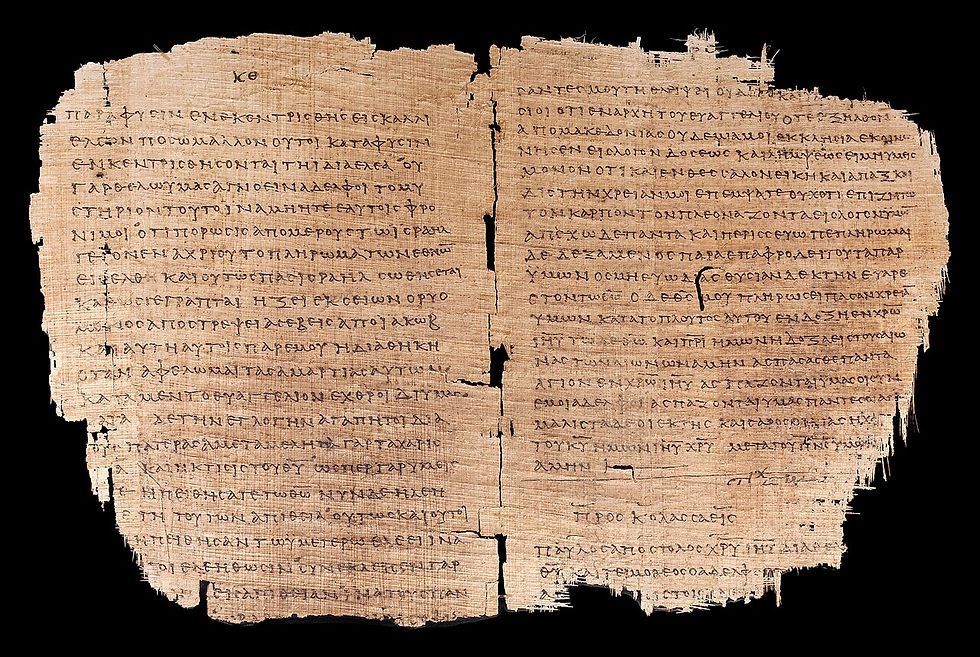 κθ
παρα φυσιν ενεκεντρισθης εις καλλι
ελεον ποσω μαλλον ουτοι κατα φυσιν
ενκεντρισθησονται τη ιδια ελεα ου
γαρ θελω υμας αγνοειν αδελφοι το μυ
στηριον τουτο ινα μη ητε εαυτοις φρο
νιμοι οτι πωρωσις απο μερους τω ισραηλ
γεγονεν αχρι ου το πληρωμα των εθνων
εισελθη και ουτως πας ισραηλ σωθησεται
καθως γεγραπται ηξει εκ σειων ο ρυο
μενος αποστρεψει ασεβεις απο ιακωβ
και αυτη αυτοις παρ εμου η διαθηκη
οταν αφελωμαι τας αμαρτιας αυτων
κατα μεν το ευαγγελιον εχθροι δι υμας
κατα δε την εγλογην αγαπητοι δια
τους πατερας αμεταμελητα γαρ τα χαρισ
και η κλησις του θυ ωσπερ γαρ υμεις
ηπειθησατε τω θω νυν δε ηλεη
τη τουτων απιθεια ουτως και ουτοι
ηπειθησαν τω υμετερω ελεει ινα
αυτοι ελεηθωσιν συνεκλεισεν γαρ
εις απιθειαν ινα τους παν
σαντες μου τη θλιψει οιδατε και
σιοι οτι εν αρχη του ευαγγελιου οτε εξηλθον
απο μακεδονιας ουδεμια μοι εκκλησια εκοινω
νησεν εις λογον δοσεως και λημψεως ει μη υμεις
μονοι οτι και εν θεσσαλονεικη και απαξ και
δις την χρειαν μοι επεμψατε ουχ οτι επιζητω
τον καρπον τον πλεοναζοντα εις λογον υμων
απεχω δε παντα και περισσευω πεπληρωμαι
δε δεξαμενος παρα επαφροδειτου τα παρ
υμων οσμην ευωδιας θυσιαν δεκτην ευαρε
στον τω θω ο δε θς μου πληρωσει πασαν χρειαν
υμων κατα το πλουτος αυτου εν δοξη εν χρω
ιηυ τω δε θω και πρι ημων η δοξα εις τους αιω
νας των αιωνων αμην ασπασασθε παντα
αγιον εν χρω ιηυ ασπαζονται υμας οι συν
εμοι αδελφοι ασπαζονται υμας παντες οι αγιοι
μαλιστα δε οι εκ της καισαρος οικιας η χαρις
του κυ ημων ιηυ χρυ μετα του πνς υμων
αμην
στιχ
προς κολασσαεις
παυλος αποστολος χρυ ιηυ δια θε
θυ και τειμοθεος ο αδελφ